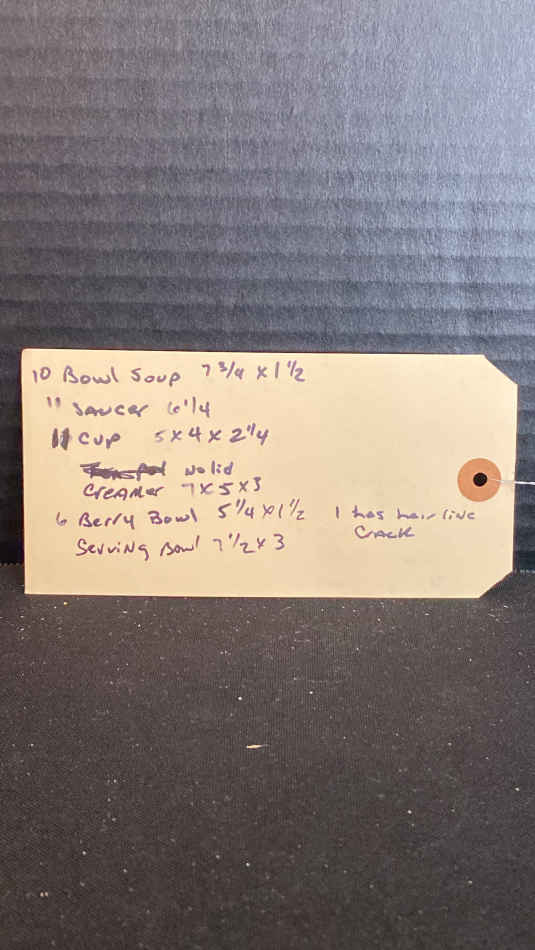 10 Bowl Soup 7 3/4 x 1 1/2
11 Saucer 6 1/4
11 Cup 5 x 4 x 2 1/4
No lid
Creamer 7 x 5 x 3
6 Berry Bowl 5 1/4 x 1 1/2 1 has hairline
Crack
Serving Bowl 7 1/2 x 3